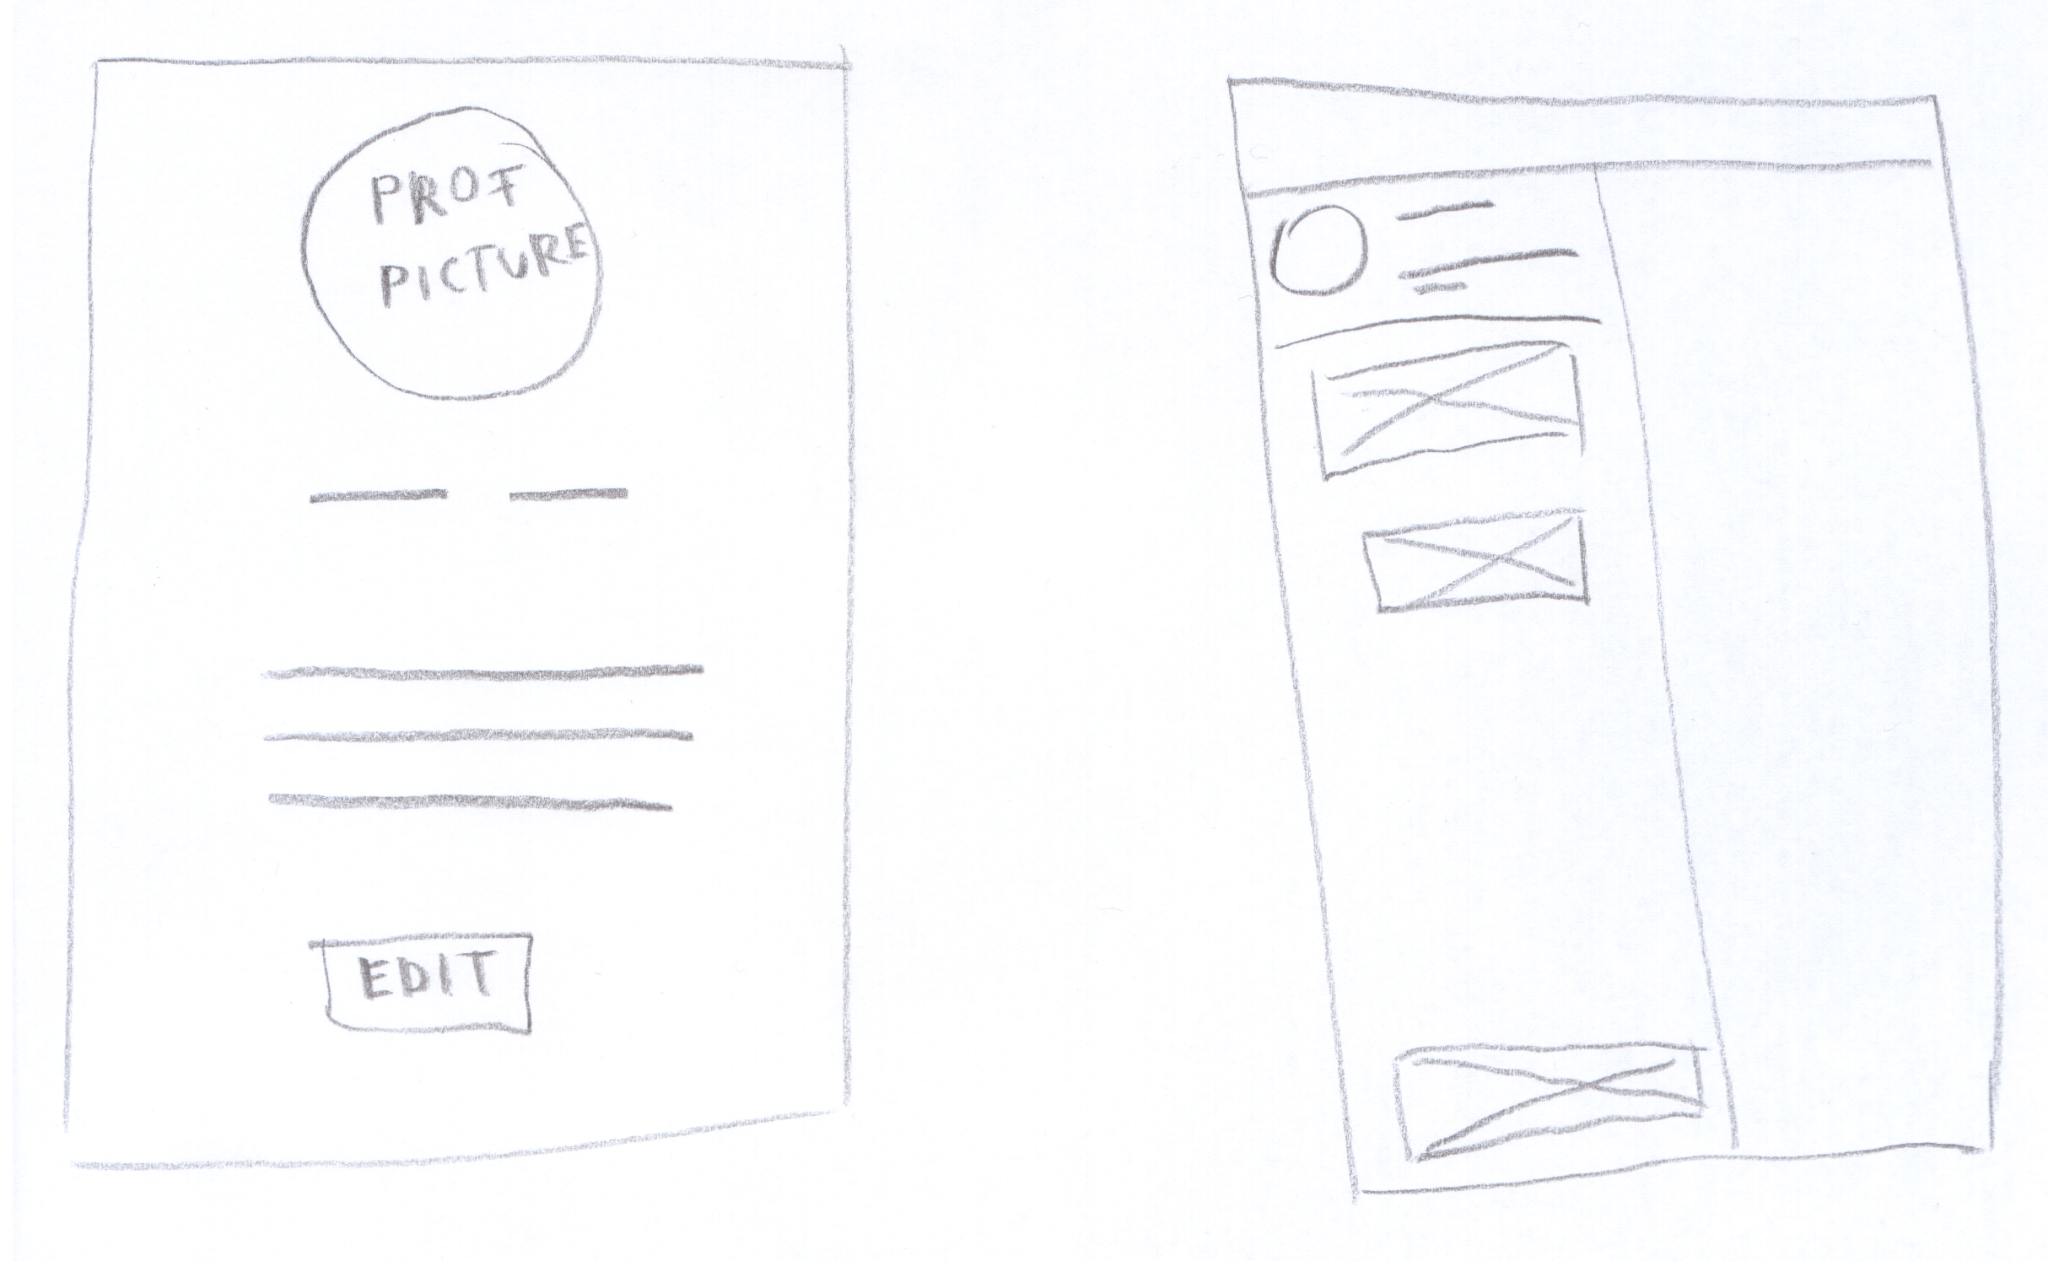 PROF
PICTURE
EDIT